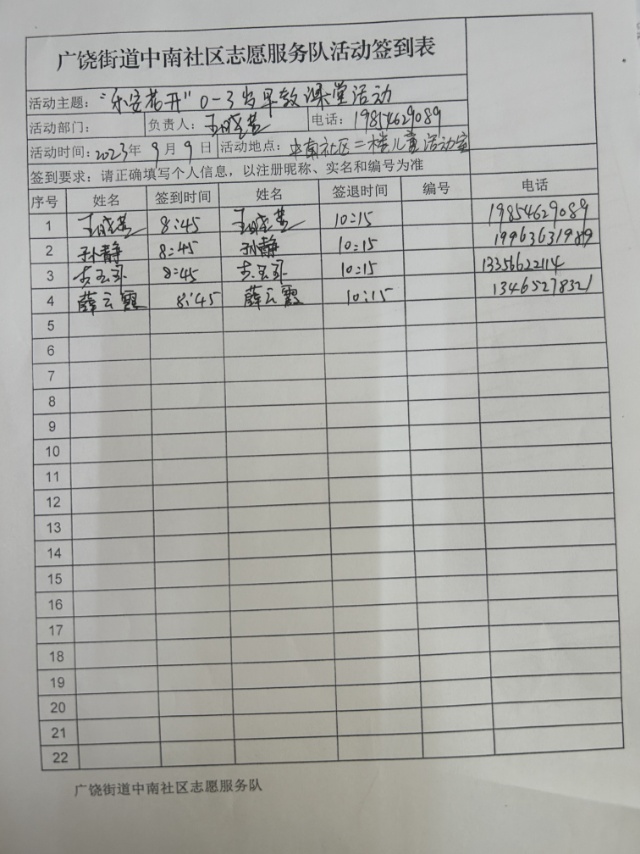 广饶街道中南社区志愿服务队活动签到表
活动主题：“乐安花开”0-3岁早教课堂活动
活动部门： 负责人： 电话：19854629089
活动时间：2023年9月9日 活动地点：中南社区二楼儿童活动室
签到要求：请正确填写个人信息，以注册昵称、实名和编号为准
序号 姓名 签到时间 姓名 签退时间 编号 电话
1 8:45 10:15 19854629089
2 孙静 8:45 孙静 10:15
3 8:45 10:15 13356622114
4 薛云霞 8:45 薛云霞 10:15 13465278321
5
6
7
8
9
10
11
12
13
14
15
16
17
18
19
20
21
22
广饶街道中南社区志愿服务队